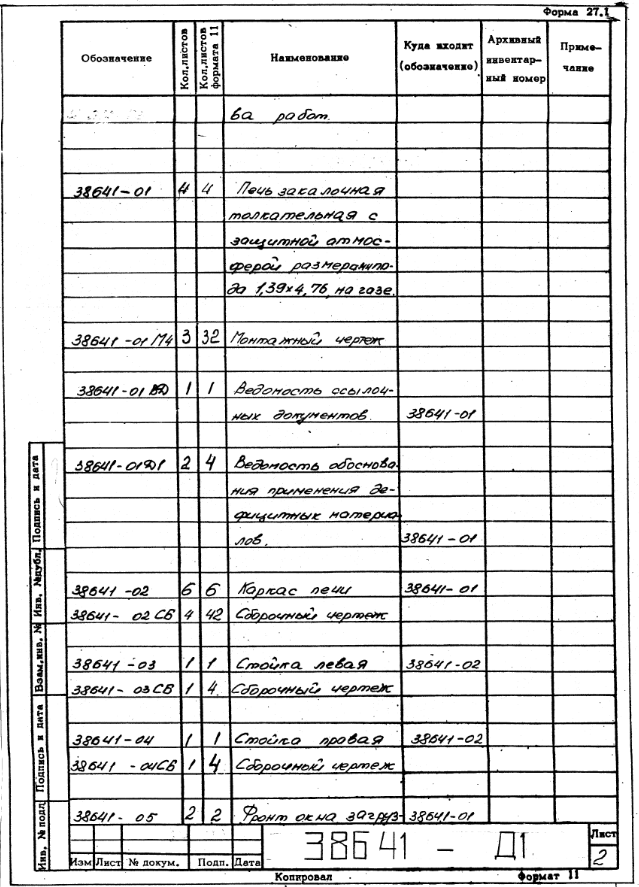 Форма 27.1
Обозначение Кол.листов Кол.листов формата 11 Наименование Куда входит (обозначение) Архивный инвентар-ный номер Приме-чание
ва работ.
38641-01 4 4 Печь закалочная
толкательная с
защитной атмос-
ферой размерами по-
да 1,39×4,76, на газе.
38641-01 МЧ 3 32 Монтажный чертеж
38641-01 ВД 1 1 Ведомость ссылоч-
ных документов. 38641-01
38641-01Д1 2 4 Ведомость обоснова-
ния применения де-
фицитных материа-
лов. 38641-01
38641-02 6 6 Каркас печи 38641-01
38641-02 СБ 4 42 Сборочный чертеж
38641-03 1 1 Стойка левая 38641-02
38641-03СБ 1 4 Сборочный чертеж
38641-04 1 1 Стойка правая 38641-02
38641-04СБ 1 4 Сборочный чертеж
38641-05 2 2 Фронт окна загруз- 38641-01
Инв. № подл. Подпись и дата Взам.инв. № Инв. №дубл. Подпись и дата
38641 - Д1
Лист
2
Изм Лист № докум. Подп. Дата
Копировал Формат 11